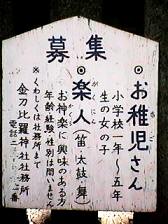 募集
◎お稚児さん
小学校一年〜五年
生の女の子
◎楽人(笛・太鼓・舞)
お神楽に興味のある方
年齢経験性別は問いません
※くわしくは社務所まで
金刀比羅神社社務所
電話